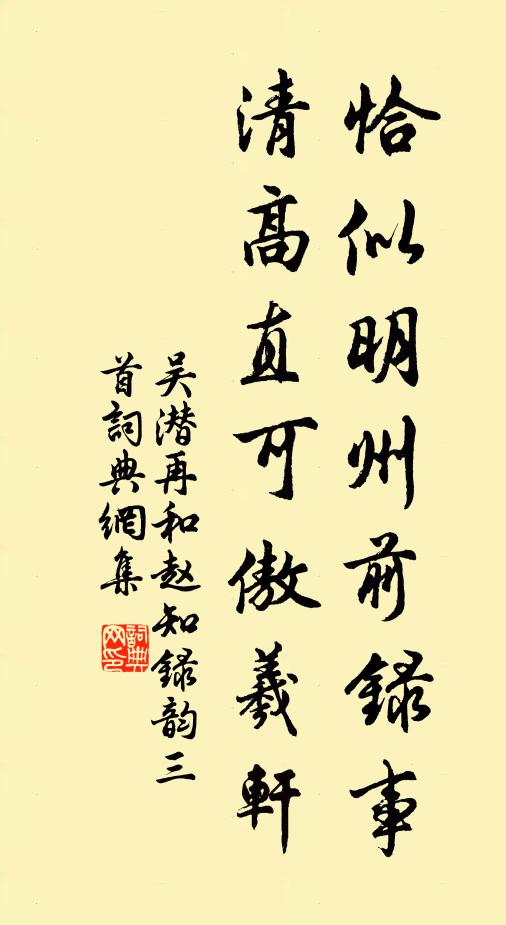 恰似明州前録事
清高直可傲羲軒
吴潜再和赵知録韵三
首詞典網集
詞典
网印